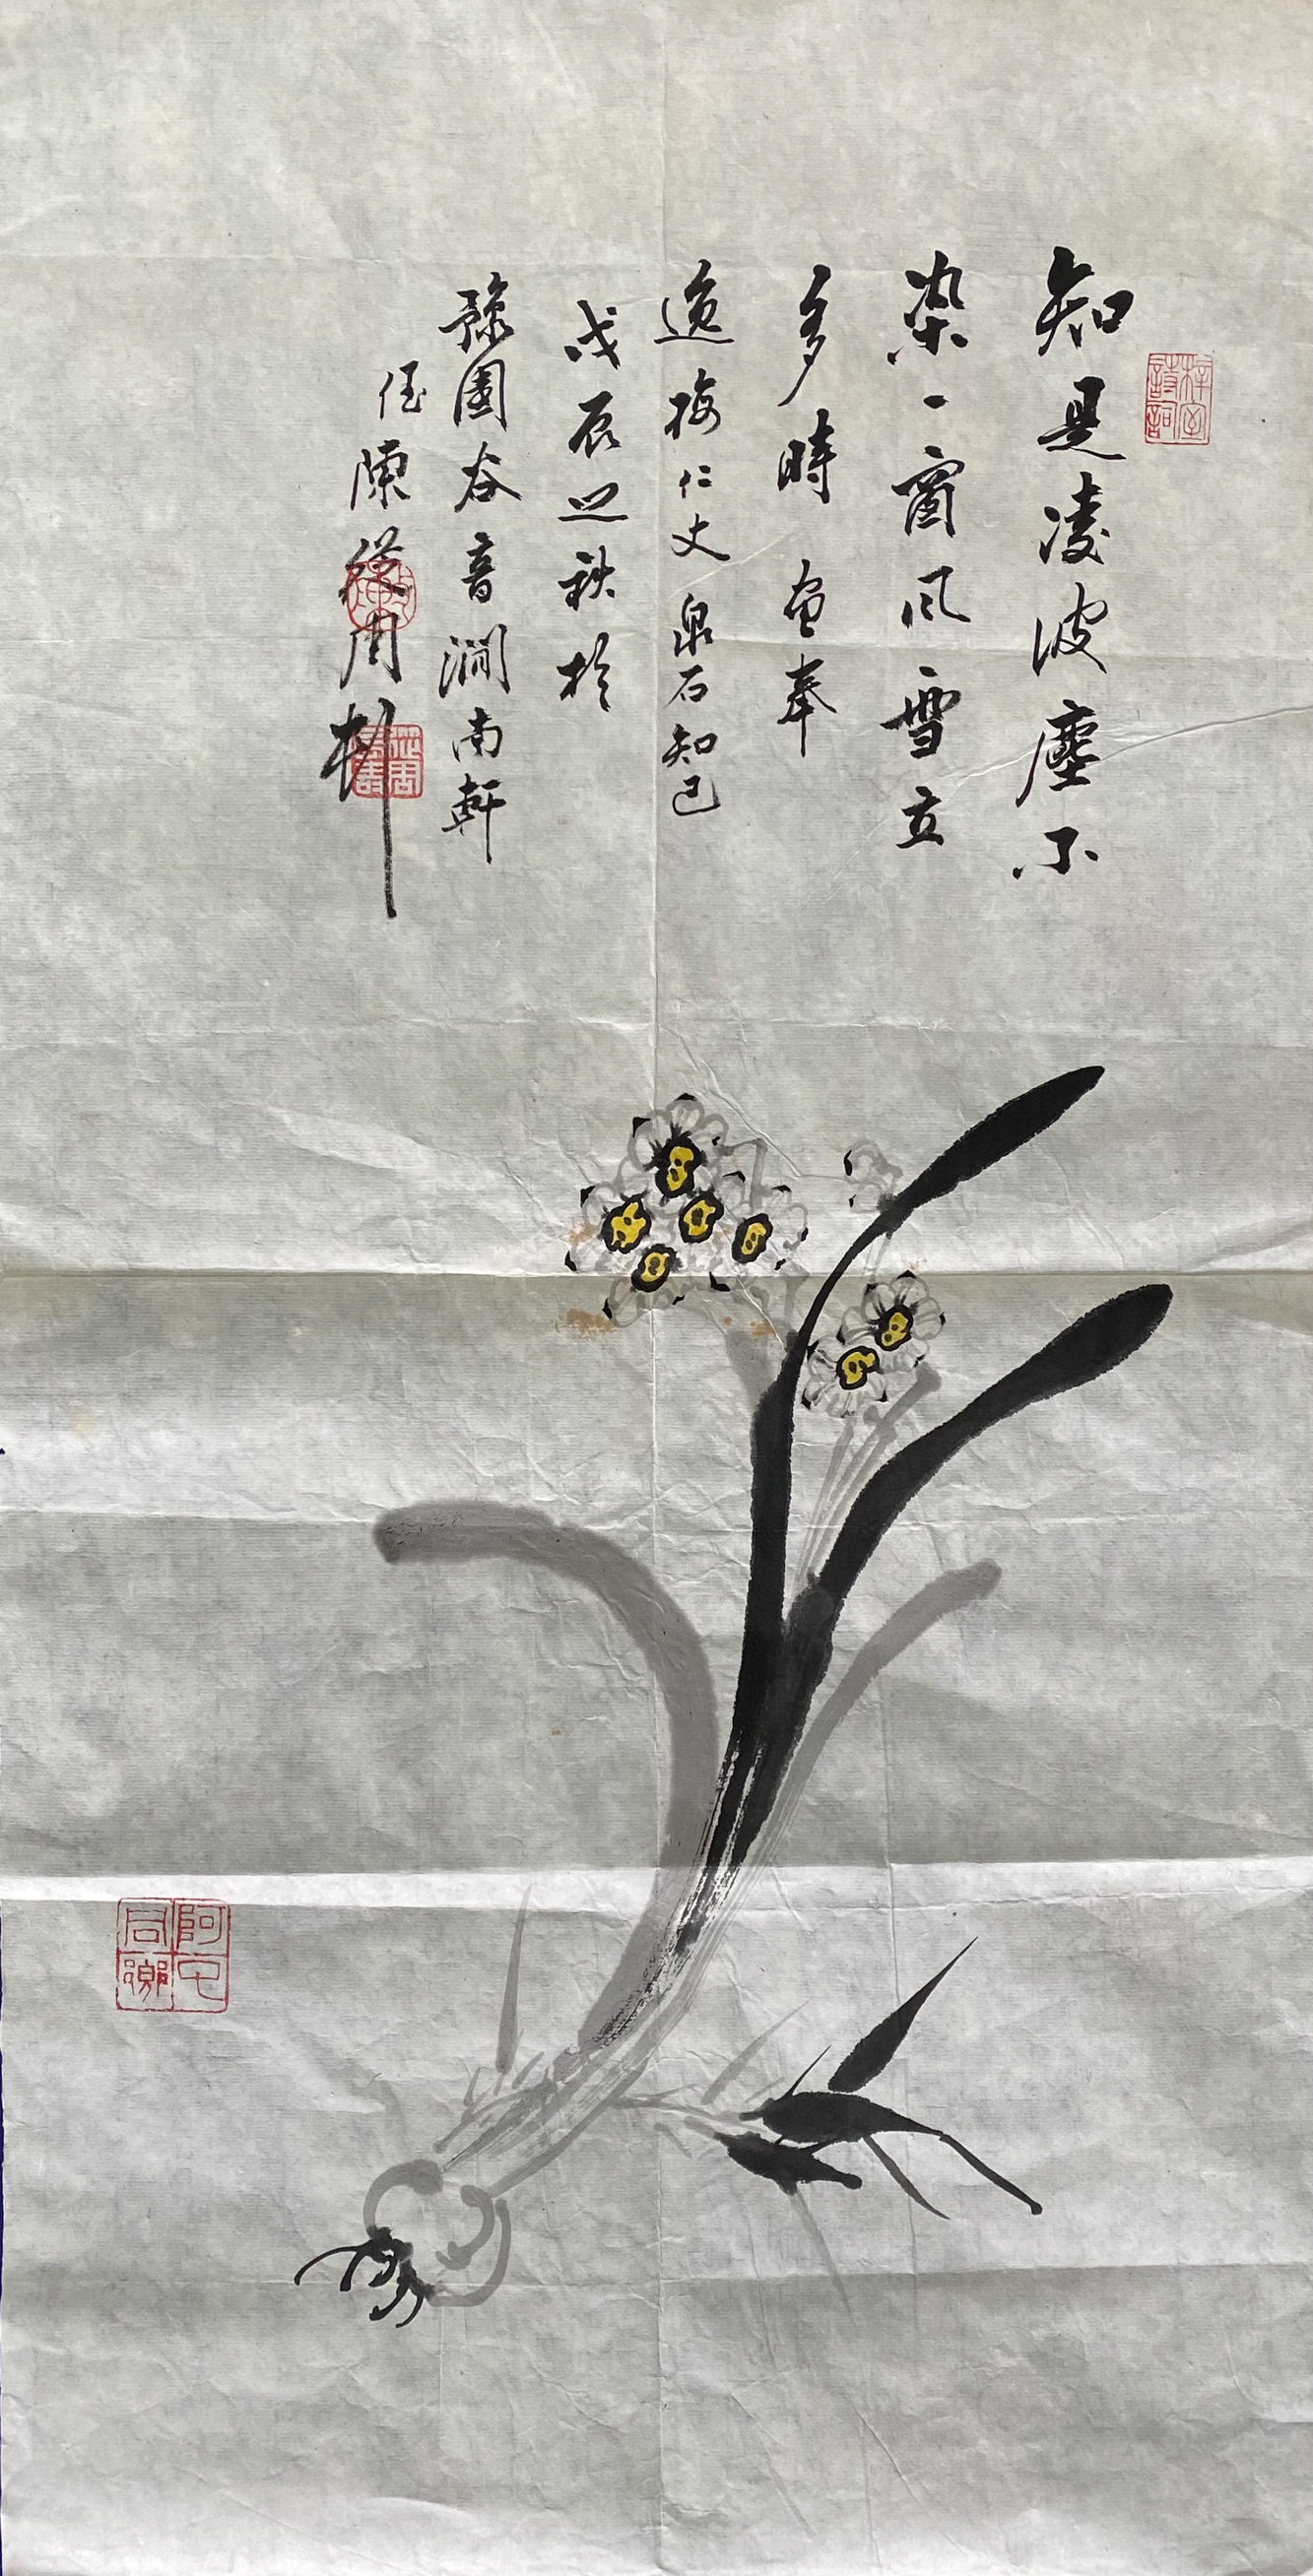 知是凌波塵不
染一窗風雪立
多時 畫奉
逸梅仁丈泉石知己
戊辰之秋於
豫園谷音澗南軒
侄陳從周
梓室
詩詞